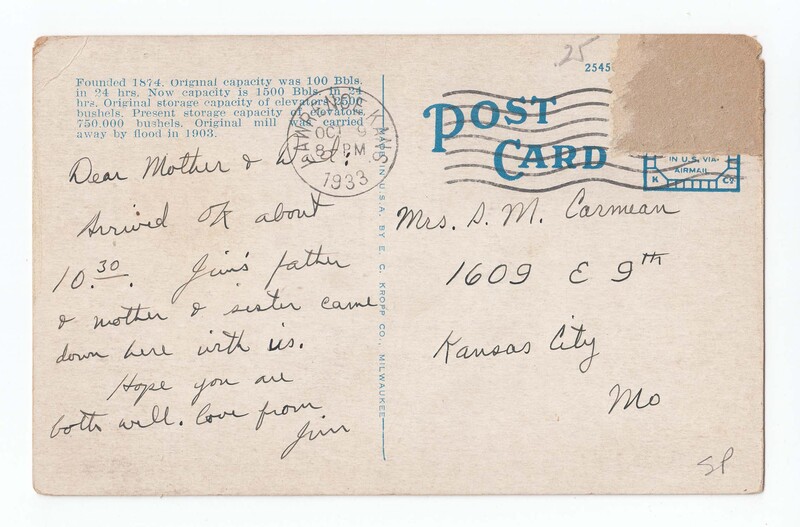 Founded 1874. Original capacity was 100 Bbls.
in 24 hrs. Now capacity is 1500 Bbls. in 24
hrs. Original storage capacity of elevators 2500
bushels. Present storage capacity of elevators
750,000 bushels. Original mill was carried
away by flood in 1903.
LAWRENCE, KANS
OCT 9
8 PM
1933
.25
2545
POST
CARD
IN U.S. VIA
AIRMAIL
K Co
Dear Mother & Dad:
Arrived OK about
10.30. Jim's father
& mother & sister came
down here with us.
Hope you are
both well. Love from
Jim
MADE IN U.S.A. BY E. C. KROPP CO., MILWAUKEE
Mrs. S. M. Carmean
1609 E 9th
Kansas City
Mo
SP